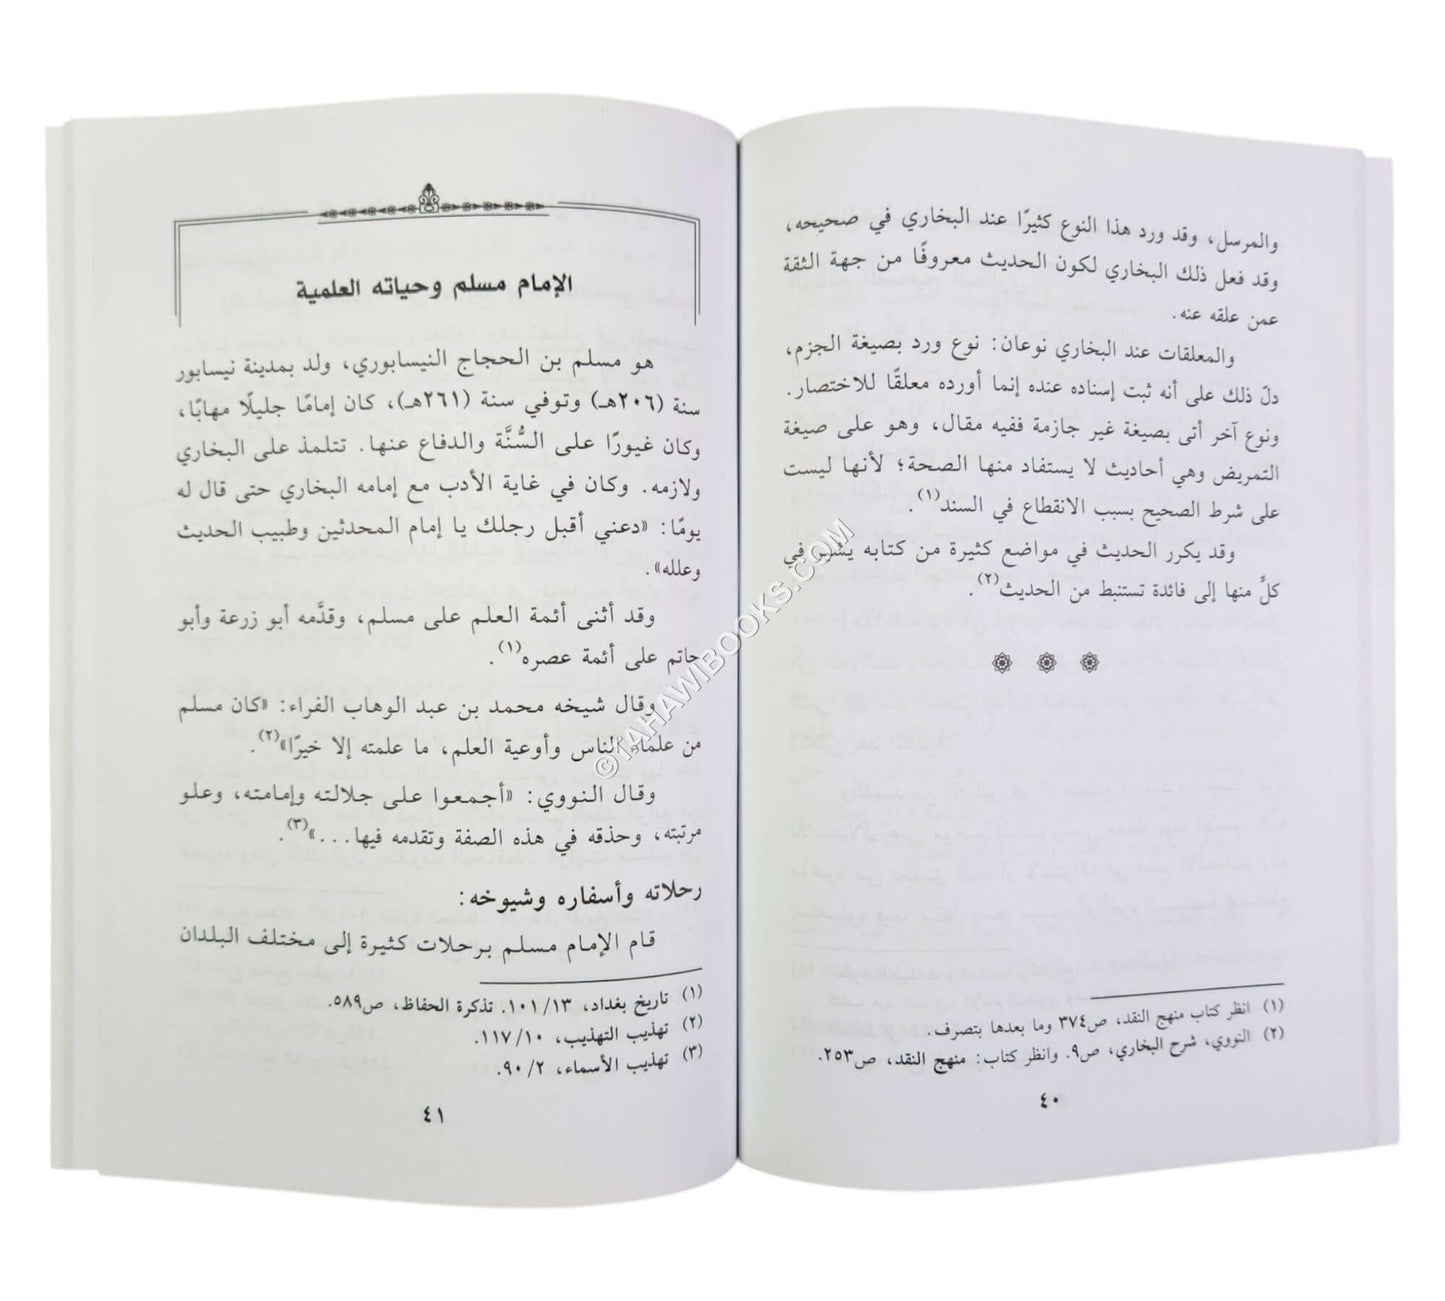 والمرسل، وقد ورد هذا النوع كثيرًا عند البخاري في صحيحه،
وقد فعل ذلك البخاري لكون الحديث معروفًا من جهة الثقة
عمن علقه عنه.
والمعلقات عند البخاري نوعان: نوع ورد بصيغة الجزم،
دلّ ذلك على أنه ثبت إسناده عنده إنما أورده معلقًا للاختصار.
ونوع آخر أتى بصيغة غير جازمة ففيه مقال، وهو على صيغة
التمريض وهي أحاديث لا يستفاد منها الصحة؛ لأنها ليست
على شرط الصحيح بسبب الانقطاع في السند(١).
وقد يكرر الحديث في مواضع كثيرة من كتابه يشير في
كلٍّ منها إلى فائدة تستنبط من الحديث(٢).
(١) انظر كتاب منهج النقد، ص٣٧٤ وما بعدها بتصرف.
(٢) النووي، شرح البخاري، ص٩. وانظر كتاب: منهج النقد، ص٢٥٣.
٤٠
الإمام مسلم وحياته العلمية
هو مسلم بن الحجاج النيسابوري، ولد بمدينة نيسابور
سنة (٢٠٦هـ) وتوفي سنة (٢٦١هـ)، كان إمامًا جليلًا مهابًا،
وكان غيورًا على السُّنَّة والدفاع عنها. تتلمذ على البخاري
ولازمه. وكان في غاية الأدب مع إمامه البخاري حتى قال له
يومًا: «دعني أقبل رجلك يا إمام المحدثين وطبيب الحديث
وعلله».
وقد أثنى أئمة العلم على مسلم، وقدَّمه أبو زرعة وأبو
حاتم على أئمة عصره(١).
وقال شيخه محمد بن عبد الوهاب الفراء: «كان مسلم
من علماء الناس وأوعية العلم، ما علمته إلا خيرًا»(٢).
وقال النووي: «أجمعوا على جلالته وإمامته، وعلو
مرتبته، وحذقه في هذه الصفة وتقدمه فيها...»(٣).
رحلاته وأسفاره وشيوخه:
قام الإمام مسلم برحلات كثيرة إلى مختلف البلدان
(١) تاريخ بغداد، ١٣/ ١٠١. تذكرة الحفاظ، ص٥٨٩.
(٢) تهذيب التهذيب، ١٠/ ١١٧.
(٣) تهذيب الأسماء، ٢/ ٩٠.
٤١
© TAHAWIBOOKS.COM